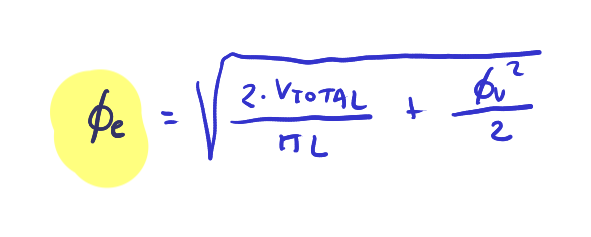 ϕe = √(2·VTOTAL / πL + ϕv² / 2)